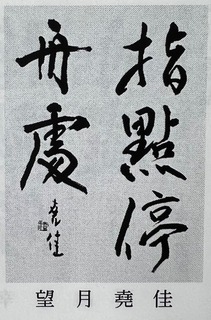 指點停
舟處
堯佳
望月堯佳